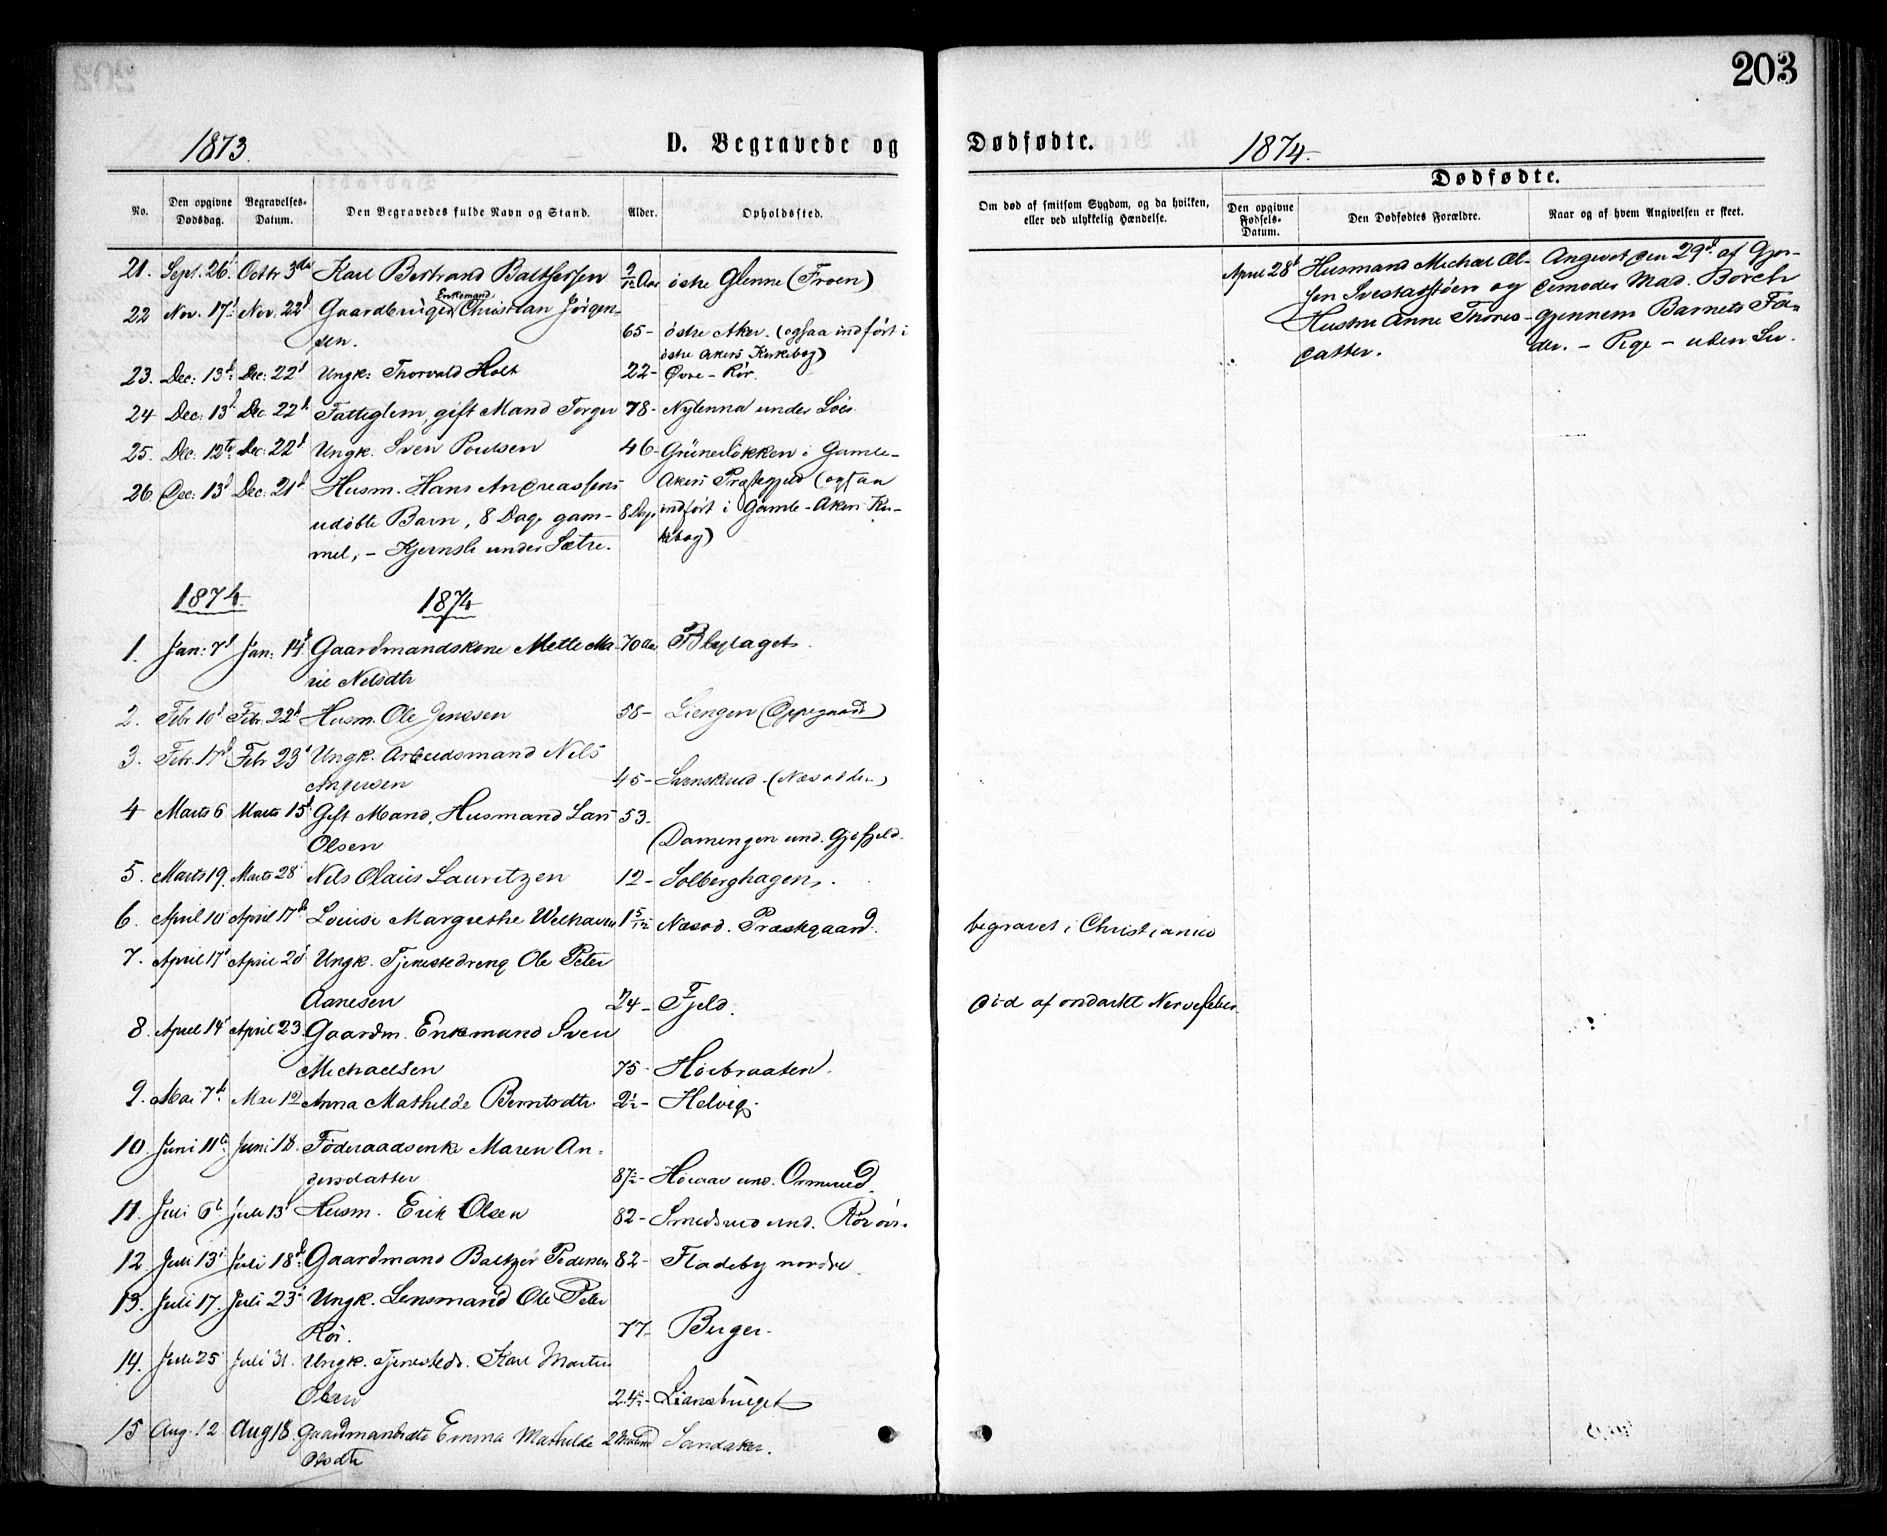 203
1873.
D. Begravede og Dødfødte.
1874.
No.
Den opgivne Dødsdag.
Begravelses-Datum.
Den Begravedes fulde Navn og Stand.
Alder.
Opholdssted.
Om død af smitsom Sygdom, og da hvilken, eller ved ulykkelig Hændelse.
Dødfødte.
Den opgivne Fødsels-Datum.
Den Dødfødtes Forældre.
Naar og af hvem Angivelsen er skeet.
21. Sept. 26d Octbr 3die Karl Bertrand Balthersen 9/12 Aar østre Glenne (Froen)
22 Nov. 17d Nov. 22d Gaardbruger Enkemand Christian Jörgen-
sen. 65- østre Aker. (ogsaa indført i
østre Akers Kirkebog)
23. Dec: 13d Dec: 22d Ungk: Thorvald Holt 22- Øvre - Rör.
24 Dec: 13d Dec. 22d Fattiglem, gift Mand Torger 78- Nylenna under
25. Dec. 12te Dec: 22d Ungk. Sven Poulsen 46- Grünerløkken i Gamle-
Akers Præstegjeld (ogsaa
26 Dec: 13d Dec: 21d Husm. Hans Andreassens
udøbte Barn, 8 Dage gam- 8 Dage indført i Gamle-Akers Kir-
mel, - Kjernsli under Sætre. kebog)
1874. 1874
1. Jan: 7d Jan: 14d Gaardmandskone Mette Ma- 70 Aar Blylaget.
rie Nelsdtr
2. Febr 10d Febr. 22d Husm. Ole Jensen 58- Liengen (Oppegaard)
3. Febr. 17d Febr 23d Ungk. Arbeidsmand Nils
Andersen 45- Svenskerud (Næsodden)
4 Marts 6 Marts 15d Gift Mand, Husmand Lars 53-
Olsen (Damengen und. Gjøfjeld
5. Marts 19. Marts 28 Nils Olaus Lauritzen 12- Solberghagen.
6. April 10 April 17de Louise Margrethe Welhaven 1 5/12 Næsod. Præstegaard. begravet i Christiania
7. April 17d April 20d Ungk. Tjenestedreng Ole Peter
Aanesen 24- Fjeld. død af ondartet Nervefeber.
8. April 14d April 23. Gaardm. Enkemand Sven
Michaelsen 75- Høibraaten.
9. Mai 7de Mai 12 Anna Mathilde Berntsdtr. 2½- Helvig.
10. Juni 11te Juni 18. Föderaadsenke Maren An-
dersdatter 87½- Høiaas und. Ormerud.
11. Juli 6te Juli 13d Husm. Erik Olsen 82- Smedsrud und. Rör øv.
12. Juli 13d Juli 18de Gaardmand Baltzer Pedersen 82- Fladeby nordre.
13. Juli 17. Juli 23d Ungk. Lensmand Ole Peter
Rör. 77- Berger.
14. Juli 25 Juli 31. Ungk. Tjenestedr. Karl Martin
Olsen 24½- Liansbruget
15 Aug. 12 Aug 18. Gaardmandsdtr Emma Mathilde 2 Maaned Sandaker.
Olsdtr
April 28d Husmand Michael Ol-
sen Svestadstøen og
Hustru Anne Thores-
datter.
Angivet den 29d af Gjor-
demoder Mad. Borch
gjennem Barnets Fa-
der. - Pige - uden Liv.